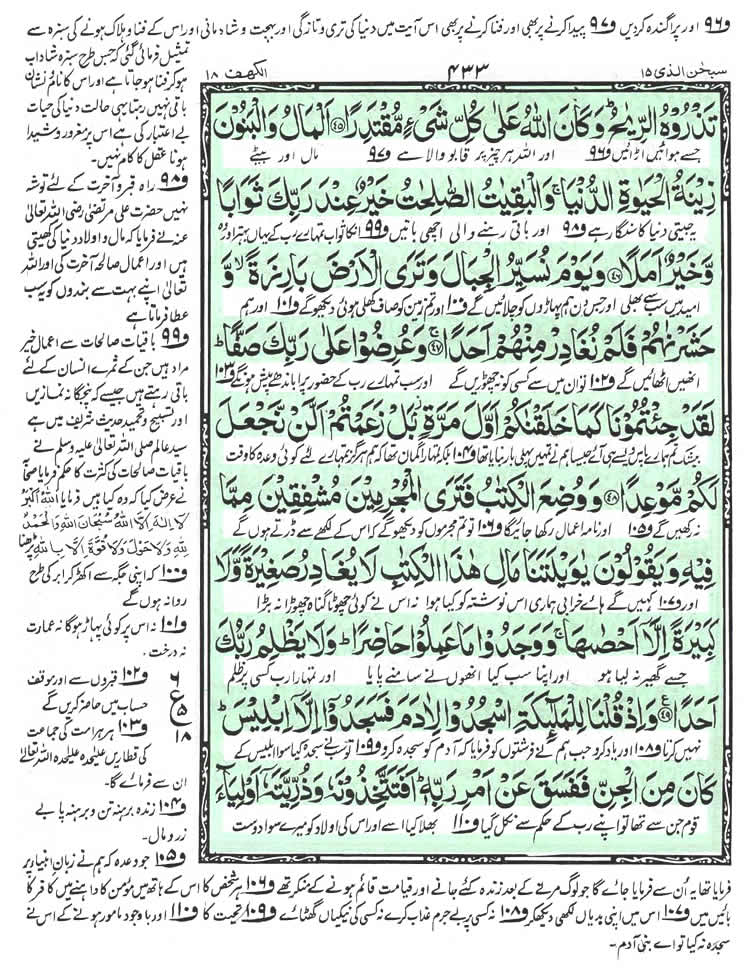 و۹۶ اور پراگندہ کردیں و۹۷ پیدا کرنے پر بھی اور فنا کرنے پر بھی اس آیت میں دنیا کی تری و تازگی اور بہجت و شادمانی اور اس کے فنا و ہلاک ہونے کی سبزہ سے
سبحٰن الذی ۱۵
۴۳۳
الکھف ۱۸
تَذْرُوْهُ الرِّيٰحُ ؕ وَكَانَ اللّٰهُ عَلٰى كُلِّ شَيْءٍ مُّقْتَدِرًا ﴿۴۵﴾ اَلْمَالُ وَالْبَنُوْنَ
جسے ہوائیں اڑائیں و۹۶ اور اللہ ہر چیز پر قابو والا ہے و۹۷ مال اور بیٹے
زِيْنَةُ الْحَيٰوةِ الدُّنْيَا ۚ وَالْبٰقِيٰتُ الصّٰلِحٰتُ خَيْرٌ عِنْدَ رَبِّكَ ثَوَابًا
یہ جیتی دنیا کا سنگار ہے و۹۸ اور باقی رہنے والی اچھی باتیں و۹۹ ان کا ثواب تمہارے رب کے یہاں بہتر اور وہ
وَّخَيْرٌ اَمَلًا ﴿۴۶﴾ وَيَوْمَ نُسَيِّرُ الْجِبَالَ وَتَرَى الْاَرْضَ بَارِزَةً ۙ وَّ
امید میں سب سے بھلی اور جس دن ہم پہاڑوں کو چلائیں گے و۱۰۰ اور تم زمین کو صاف کھلی ہوئی دیکھو گے و۱۰۱ اور ہم
حَشَرْنٰهُمْ فَلَمْ نُغَادِرْ مِنْهُمْ اَحَدًا ﴿۴۷﴾ وَعُرِضُوْا عَلٰى رَبِّكَ صَفًّا ؕ
انھیں اٹھائیں گے و۱۰۲ تو ان میں سے کسی کو نہ چھوڑیں گے اور سب تمہارے رب کے حضور پرا باندھے پیش ہوں گے و۱۰۳
لَقَدْ جِئْتُمُوْنَا كَمَا خَلَقْنٰكُمْ اَوَّلَ مَرَّةٍۭ ؗ بَلْ زَعَمْتُمْ اَلَّنْ نَّجْعَلَ
بیشک تم ہمارے پاس ویسے ہی آئے جیسا ہم نے تمہیں پہلی بار بنایا تھا و۱۰۴ بلکہ تمہارا گمان تھا کہ ہم ہرگز تمہارے لئے کوئی وعدہ کا وقت
لَكُمْ مَّوْعِدًا ﴿۴۸﴾ وَوُضِعَ الْكِتٰبُ فَتَرَى الْمُجْرِمِيْنَ مُشْفِقِيْنَ مِمَّا
نہ رکھیں گے و۱۰۵ اور نامۂ اعمال رکھا جائیگا و۱۰۶ تو تم مجرموں کو دیکھو گے کہ اس کے لکھے سے ڈرتے ہوں گے
فِيْهِ وَيَقُوْلُوْنَ يٰوَيْلَتَنَا مَالِ هٰذَا الْكِتٰبِ لَا يُغَادِرُ صَغِيْرَةً وَّلَا
اور و۱۰۷ کہیں گے ہائے خرابی ہماری اس نوشتہ کو کیا ہوا نہ اس نے کوئی چھوٹا گناہ چھوڑا نہ بڑا
كَبِيْرَةً اِلَّاۤ اَحْصٰىهَا ۚ وَوَجَدُوْا مَا عَمِلُوْا حَاضِرًا ؕ وَلَا يَظْلِمُ رَبُّكَ
جسے گھیر نہ لیا ہو اور اپنا سب کیا انھوں نے سامنے پایا اور تمہارا رب کسی پر ظلم
اَحَدًا ﴿۴۹﴾ وَاِذْ قُلْنَا لِلْمَلٰٓئِكَةِ اسْجُدُوْا لِاٰدَمَ فَسَجَدُوْۤا اِلَّاۤ اِبْلِيْسَ ؕ
نہیں کرتا و۱۰۸ اور یاد کرو جب ہم نے فرشتوں کو فرمایا کہ آدم کو سجدہ کرو و۱۰۹ تو سب نے سجدہ کیا سوا ابلیس کے
كَانَ مِنَ الْجِنِّ فَفَسَقَ عَنْ اَمْرِ رَبِّهٖ ؕ اَفَتَتَّخِذُوْنَهٗ وَذُرِّيَّتَهٗۤ اَوْلِيَآءَ
قوم جن سے تھا تو اپنے رب کے حکم سے نکل گیا و۱۱۰ بھلا کیا اسے اور اس کی اولاد کو میرے سوا دوست
تمثیل فرمائی گئی کہ جس طرح سبزہ شاداب
ہو کر فنا ہو جاتا ہے اور اس کا نام و نشان
باقی نہیں رہتا یہی حالت دنیا کی حیات
بے اعتبار کی ہے اس پر مغرور و شیدا
ہونا عقل کا کام نہیں۔
و۹۸ راہ قبر و آخرت کے لئے توشہ
نہیں حضرت علی مرتضیٰ رضی اللہ تعالیٰ
عنہ نے فرمایا کہ مال و اولاد دنیا کی کھیتی
ہیں اور اعمال صالحہ آخرت کی اور اللہ
تعالیٰ اپنے بہت سے بندوں کو یہ سب
عطا فرماتا ہے
و۹۹ باقیات صالحات سے اعمال خیر
مراد ہیں جن کے ثمرے انسان کے لئے
باقی رہتے ہیں جیسے کہ پنجگانہ نمازیں
اور تسبیح و تحمید حدیث شریف میں ہے
سید عالم صلی اللہ تعالیٰ علیہ وسلم نے
باقیات صالحات کی کثرت کا حکم فرمایا صحابہ
نے عرض کیا کہ وہ کیا ہیں فرمایا اَللّٰهُ اَكْبَرُ
لَاۤ اِلٰهَ اِلَّا اللّٰهُ سُبْحَانَ اللّٰهِ وَالْحَمْدُ
لِلّٰهِ وَلَا حَوْلَ وَلَا قُوَّةَ اِلَّا بِاللّٰهِ پڑھنا
و۱۰۰ کہ اپنی جگہ سے اکھڑ کر ابر کی طرح
روانہ ہوں گے
و۱۰۱ نہ اس پر کوئی پہاڑ ہوگا نہ عمارت
نہ درخت۔
و۱۰۲ قبروں سے اور موقف
حساب میں حاضر کریں گے
و۱۰۳ ہر ہر امت کی جماعت
کی قطاریں علیحدہ علیحدہ اللہ تعالیٰ
ان سے فرمائے گا۔
۶
ع
۵
۱۸
و۱۰۴ زندہ برہنہ تن و برہنہ پا بے
زر و مال۔
و۱۰۵ جو وعدہ کہ ہم نے زبان انبیاء پر
فرمایا تھا یہ ان سے فرمایا جائے گا جو لوگ مرنے کے بعد زندہ کئے جانے اور قیامت قائم ہونے کے منکر تھے و۱۰۶ ہر شخص کا اس کے ہاتھ میں مؤمن کا داہنے میں کافر کا
بائیں میں و۱۰۷ اس میں اپنی بدیاں لکھی دیکھ کر و۱۰۸ نہ کسی پر بے جرم عذاب کرے نہ کسی کی نیکیاں گھٹائے و۱۰۹ تحیت کا و۱۱۰ اور باوجود مامور ہونے کے اس نے
سجدہ نہ کیا تو اے بنی آدم۔